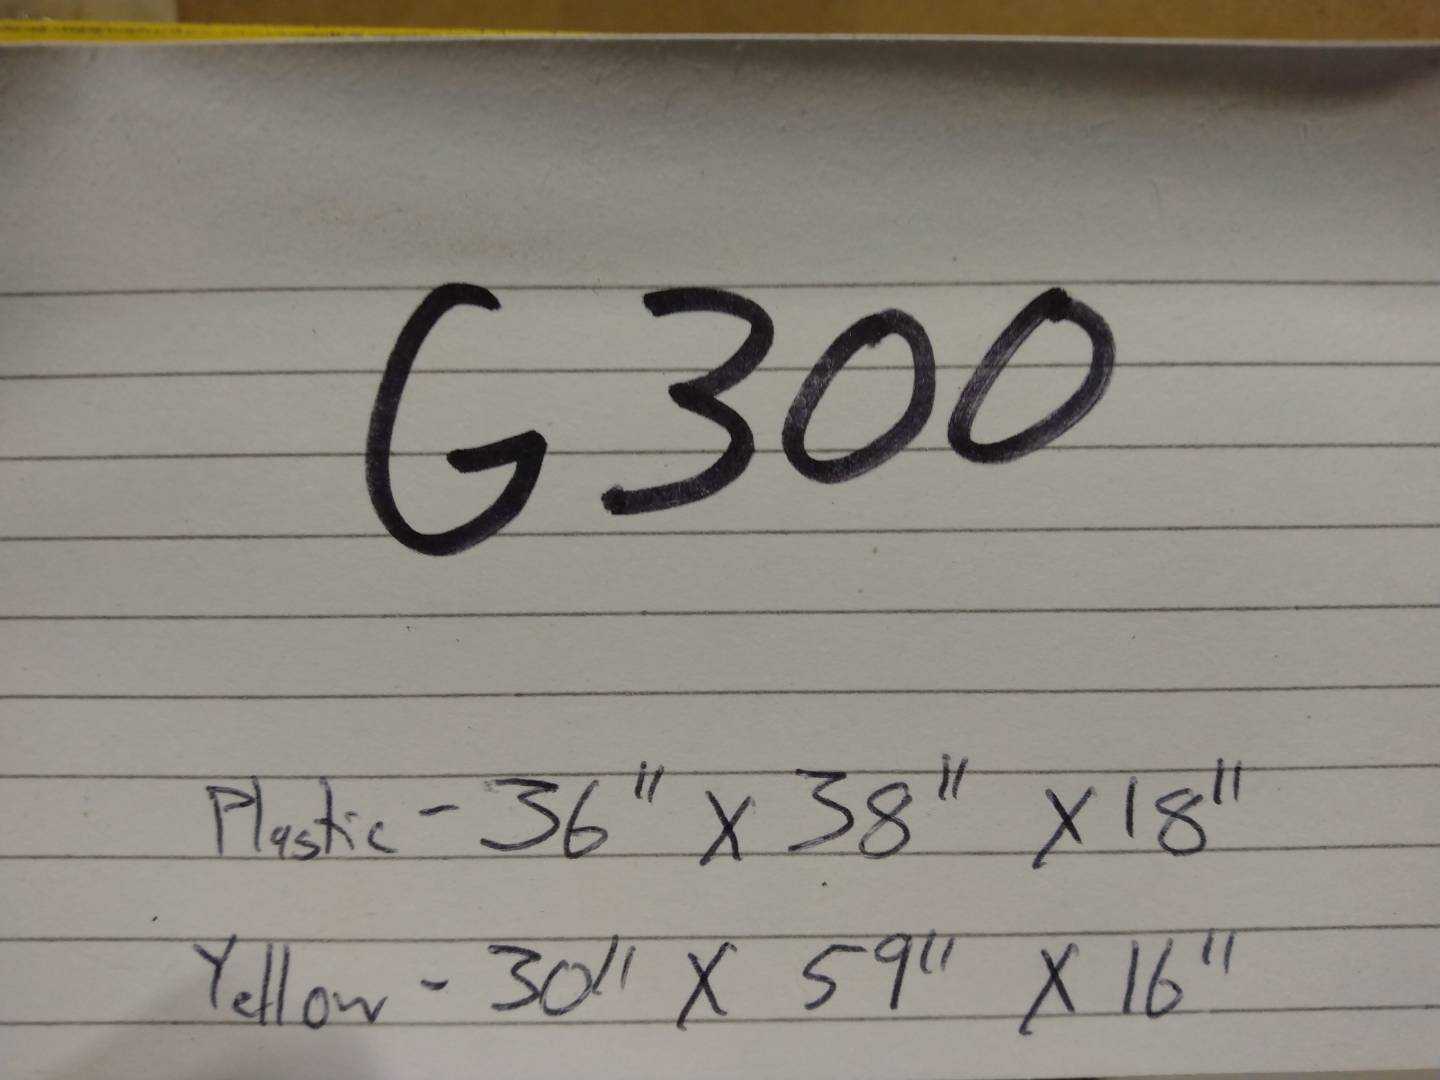 G300
Plastic - 36" X 38" X 18"
Yellow - 30" X 59" X 16"